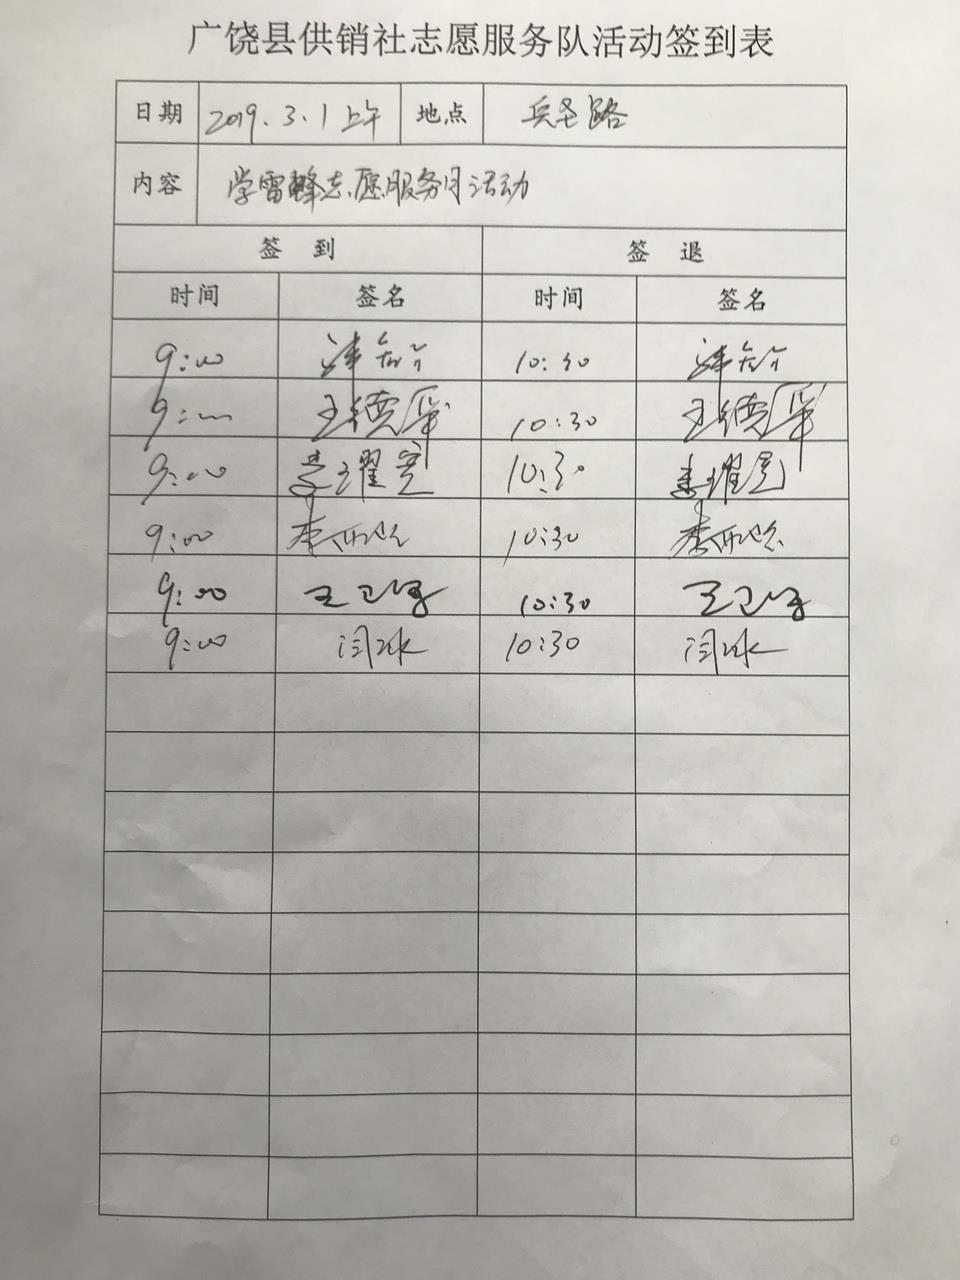 广饶县供销社志愿服务队活动签到表
日期 2019.3.1上午 地点 兵圣路
内容 学雷锋志愿服务月活动
签 到 签 退
时间 签名 时间 签名
9:00 10:30
9:00 王德军 10:30 王德军
9:00 李耀宽 10:30 李耀宽
9:00 李 10:30 李
9:00 王卫 10:30 王卫
9:00 闫冰 10:30 闫冰